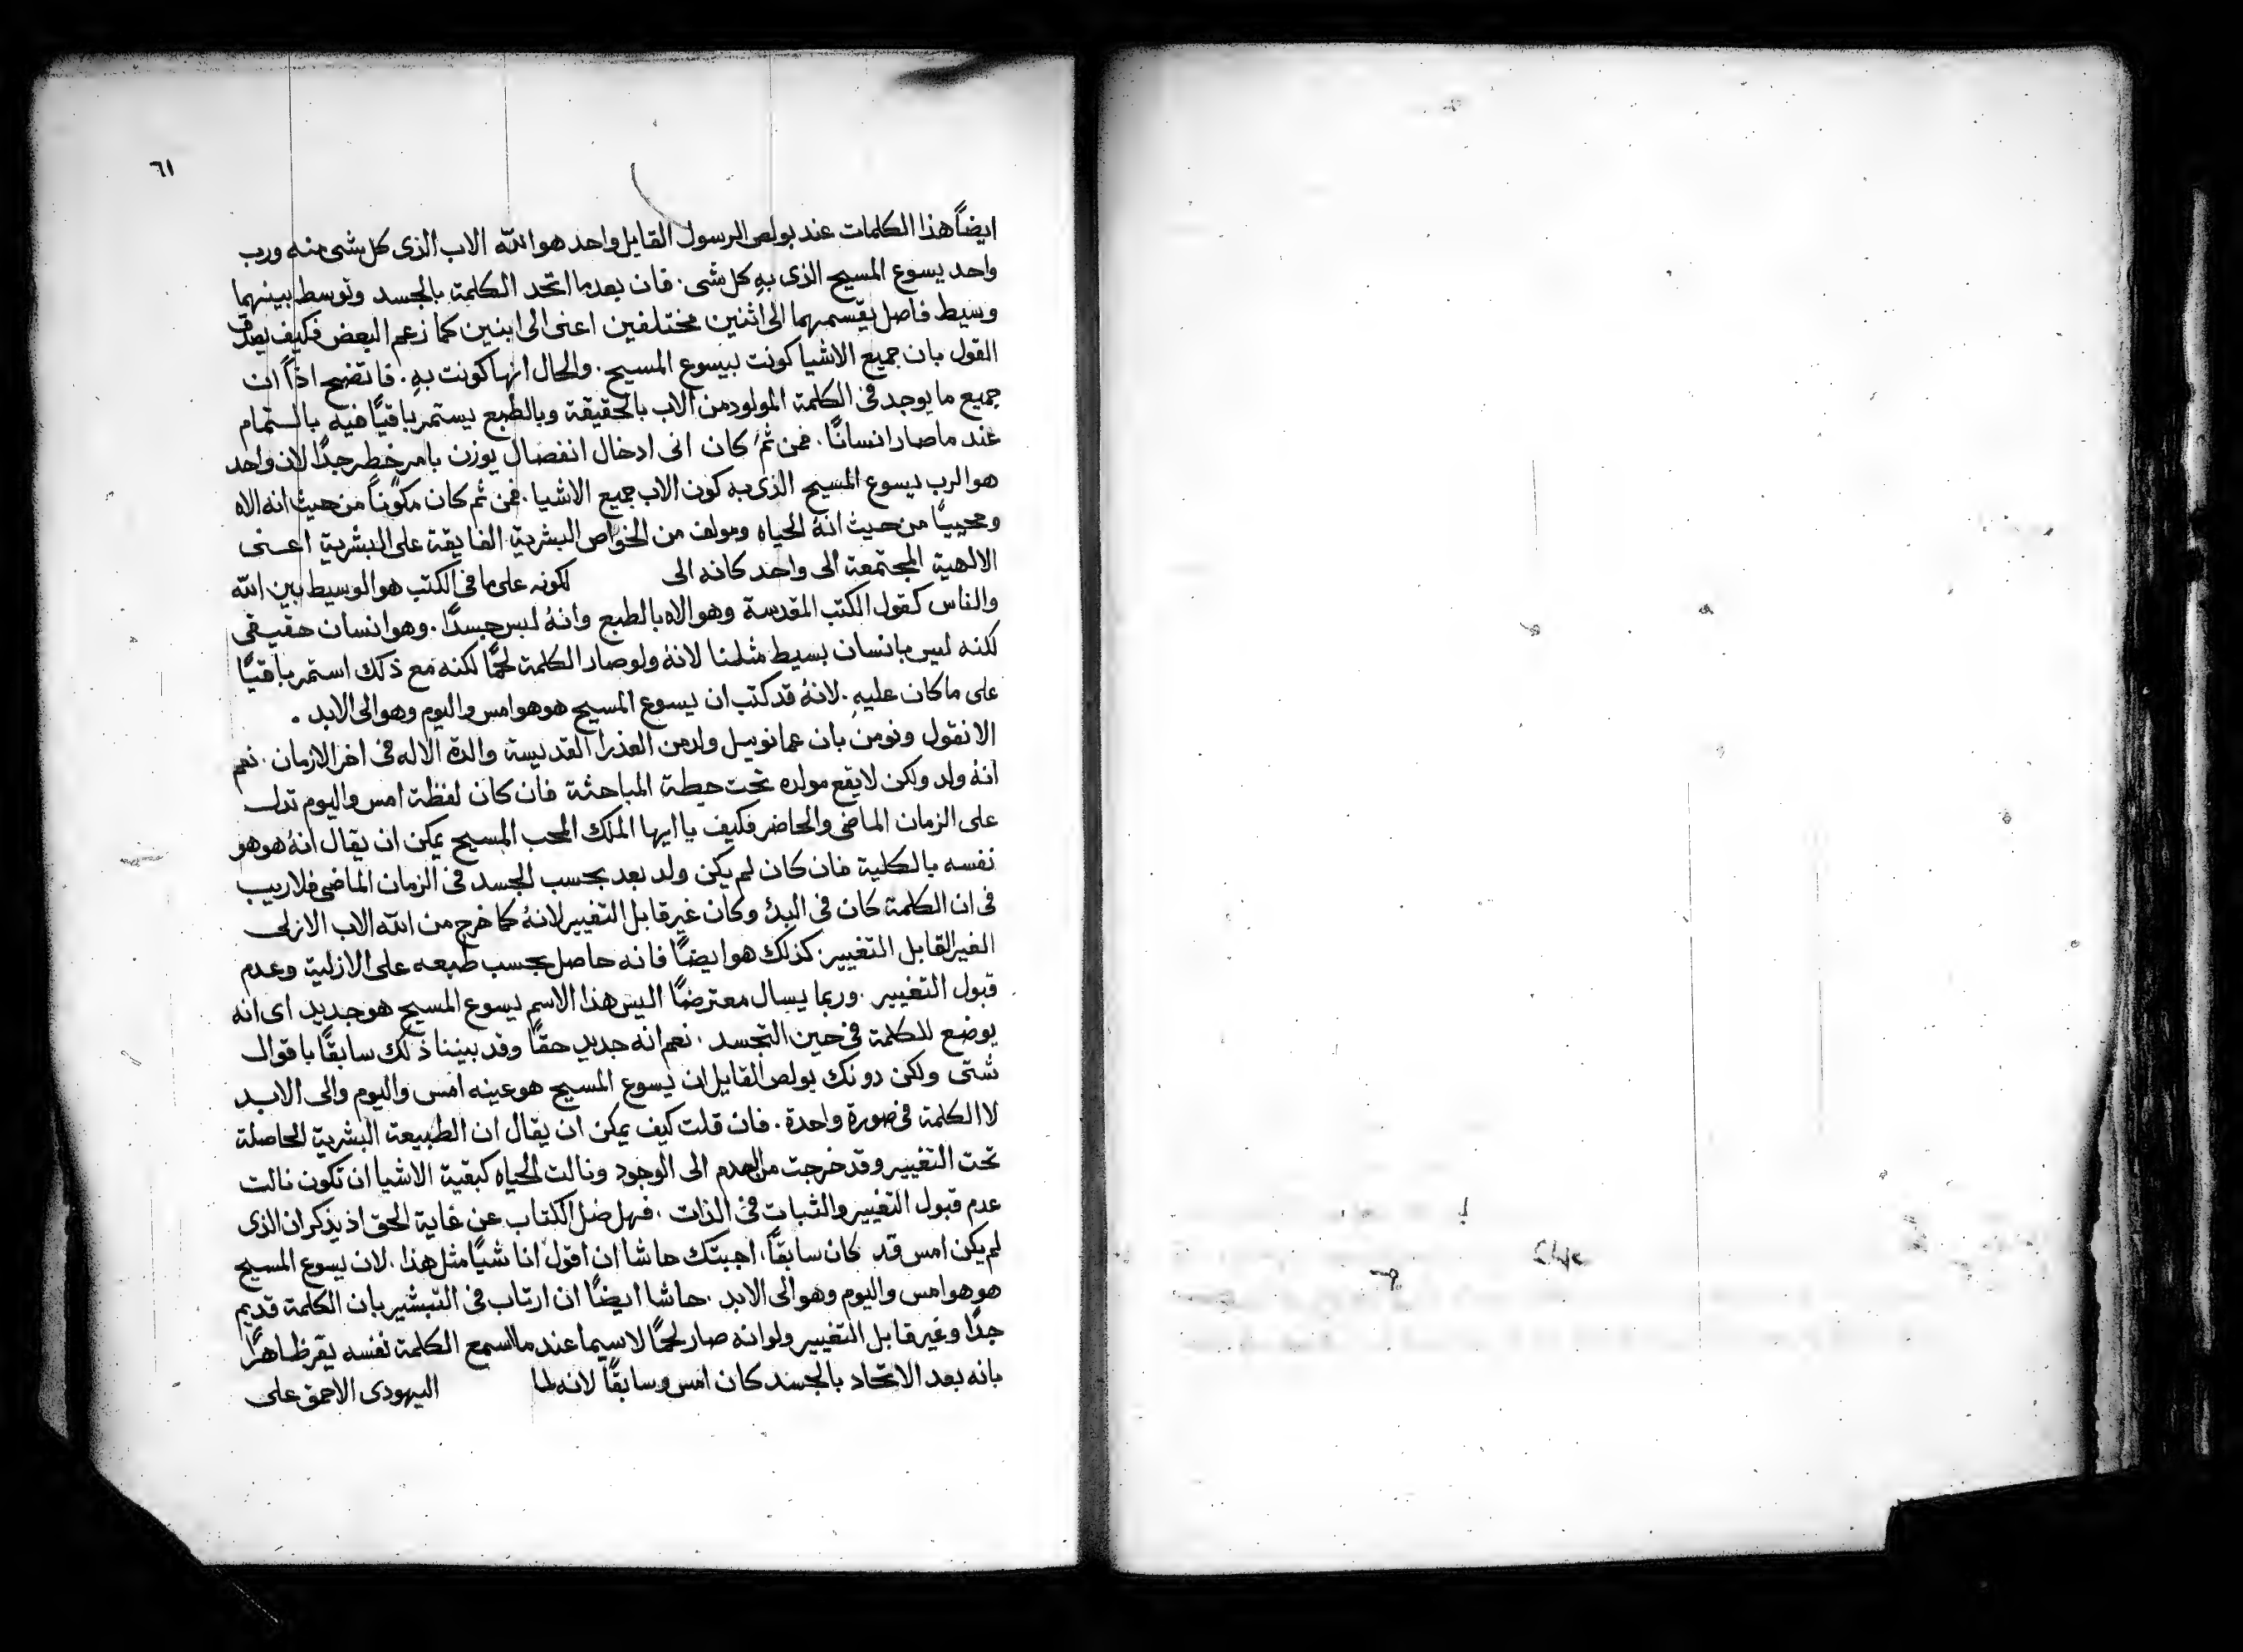 ٦١
ايضاً هذا الكلمات عند بولص الرسول القايل واحد هو الله الاب الذى كل شى منه ورب
واحد يسوع المسيح الذى بهِ كل شى . فان بعدما اتحد الكلمة بالجسد وتوسط بينهما
وسيط فاصل يقسمهما الى اثنين مختلفين اعنى الى ابنين كما زعم البعض فكيف يصدق
القول بان جميع الاشيا كونت بيسوع المسيح . والحال انها كونت بهِ . فاتضح اذاً ان
جميع ما يوجد فى الكلمة المولود من الاب بالحقيقة وبالطبع يستمر باقيًا فيه بالتمام
عند ما صار انسانًا . فمن ثمَ كان انى ادخال انفصال يوزن بامر خطر جدًا لان واحد
هو الرب يسوع المسيح الذى به كون الاب جميع الاشيا . فمن ثم كان مكونًا من حيث انه الاه
ومحييًا من حيث انهُ الحياه ومولف من الخواص البشرية الفايقة على البشرية اعنى
الالهية المجتمعة الى واحد كانه الى لكونه على ما فى الكتب هو الوسيط بين الله
والناس كقول الكتب المقدسة وهو الاه بالطبع وانهُ لبس جسدًا . وهو انسان حقيقى
لكنه ليس بانسان بسيط مثلنا لانهُ ولو صار الكلمة لحمًا لكنه مع ذلك استمر باقيًا
على ما كان عليهِ . لانهُ قد كتب ان يسوع المسيح هو هو امس واليوم وهو الى الابد .
الا نقول ونومن بان عمانوييل ولد من العذرا القديسة والدة الاله فى اخر الازمان . نعم
انهُ ولد ولكن لا يقع مولده تحت حيطة المباحثة فان كان لفظة امس واليوم تدل
على الزمان الماضى والحاضر فكيف يا ايها الملك المحب المسيح يمكن ان يقال انهُ هو هو
نفسه بالكلية فان كان لم يكن ولد بعد بحسب الجسد فى الزمان الماضى فلا ريب
فى ان الكلمة كان فى البدْ وكان غير قابل التغيير لانهُ كما خرج من الله الاب الازلى
الغير القابل التغيير . كذلك هو ايضًا فانه حاصل بحسب طبعه على الازلية وعدم
قبول التغيير . وربما يسال معترضًا اليس هذا الاسم يسوع المسيح هو جديد اى انه
يوضع للكلمة فى حين التجسد . نعم انه جديد حقًا وقد بيننا ذلك سابقًا باقوال
شتى ولكن دونك بولص القايل ان يسوع المسيح هو عينه امس واليوم والى الابد
لا الكلمة فى صورة واحدة . فان قلت كيف يمكن ان يقال ان الطبيعة البشرية الحاصلة
تحت التغيير وقد خرجت من العدم الى الوجود ونالت الحياه كبقية الاشيا ان تكون نالت
عدم قبول التغيير والثبات فى الذات . فهل ضل الكتاب عن غاية الحق اذ يذكر ان الذى
لم يكن امس قد كان سابقًا . اجبتك حاشا ان اقول انا شيًا مثل هذا . لان يسوع المسيح
هو هو امس واليوم وهو الى الابد . حاشا ايضًا ان ارتاب فى التبشير بان الكلمة قديم
جدًا وغير قابل التغيير ولو انه صار لحمًا لا سيما عند ما اسمع الكلمة نفسه يقر ظاهرًا
بانه بعد الاتحاد بالجسد كان امس وسابقًا لانه لما اليهودى الاحمق على